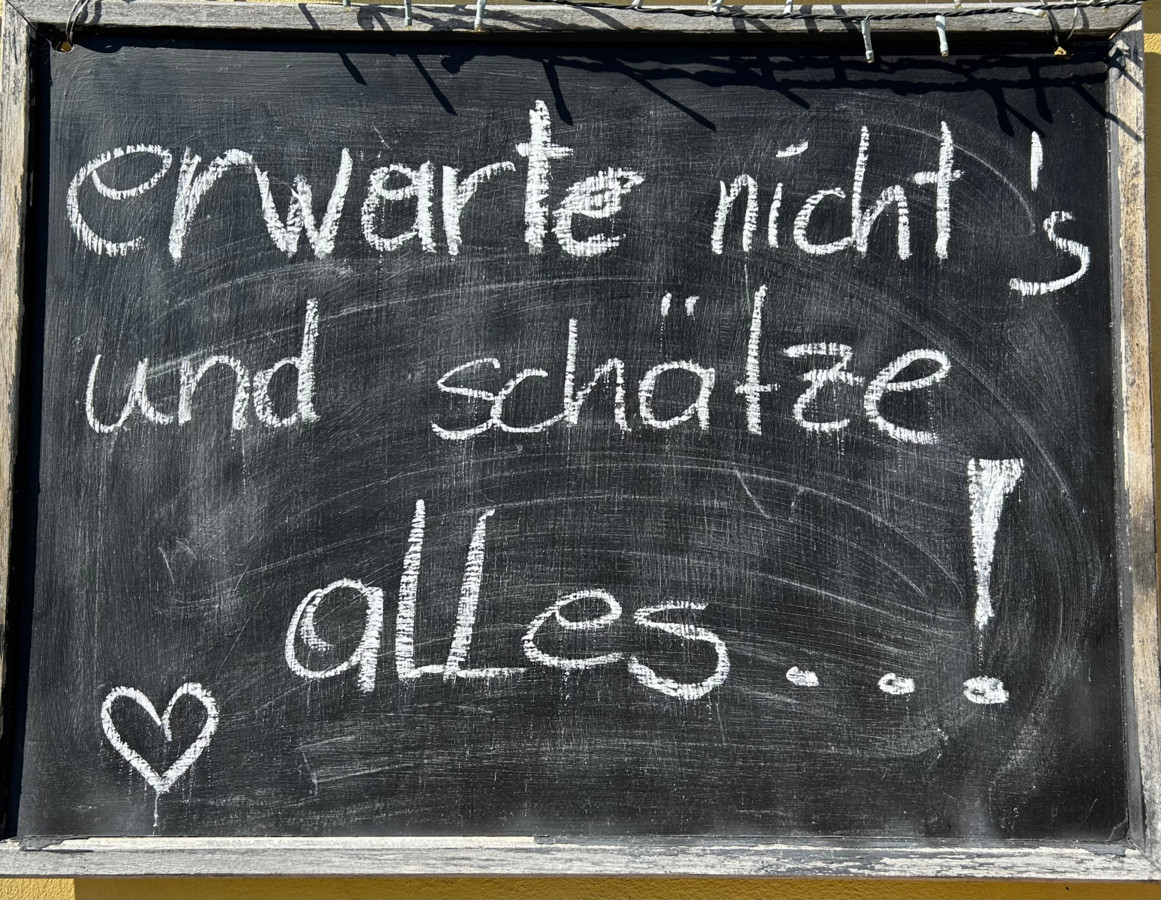 erwarte nicht's
und schätze
alles...!